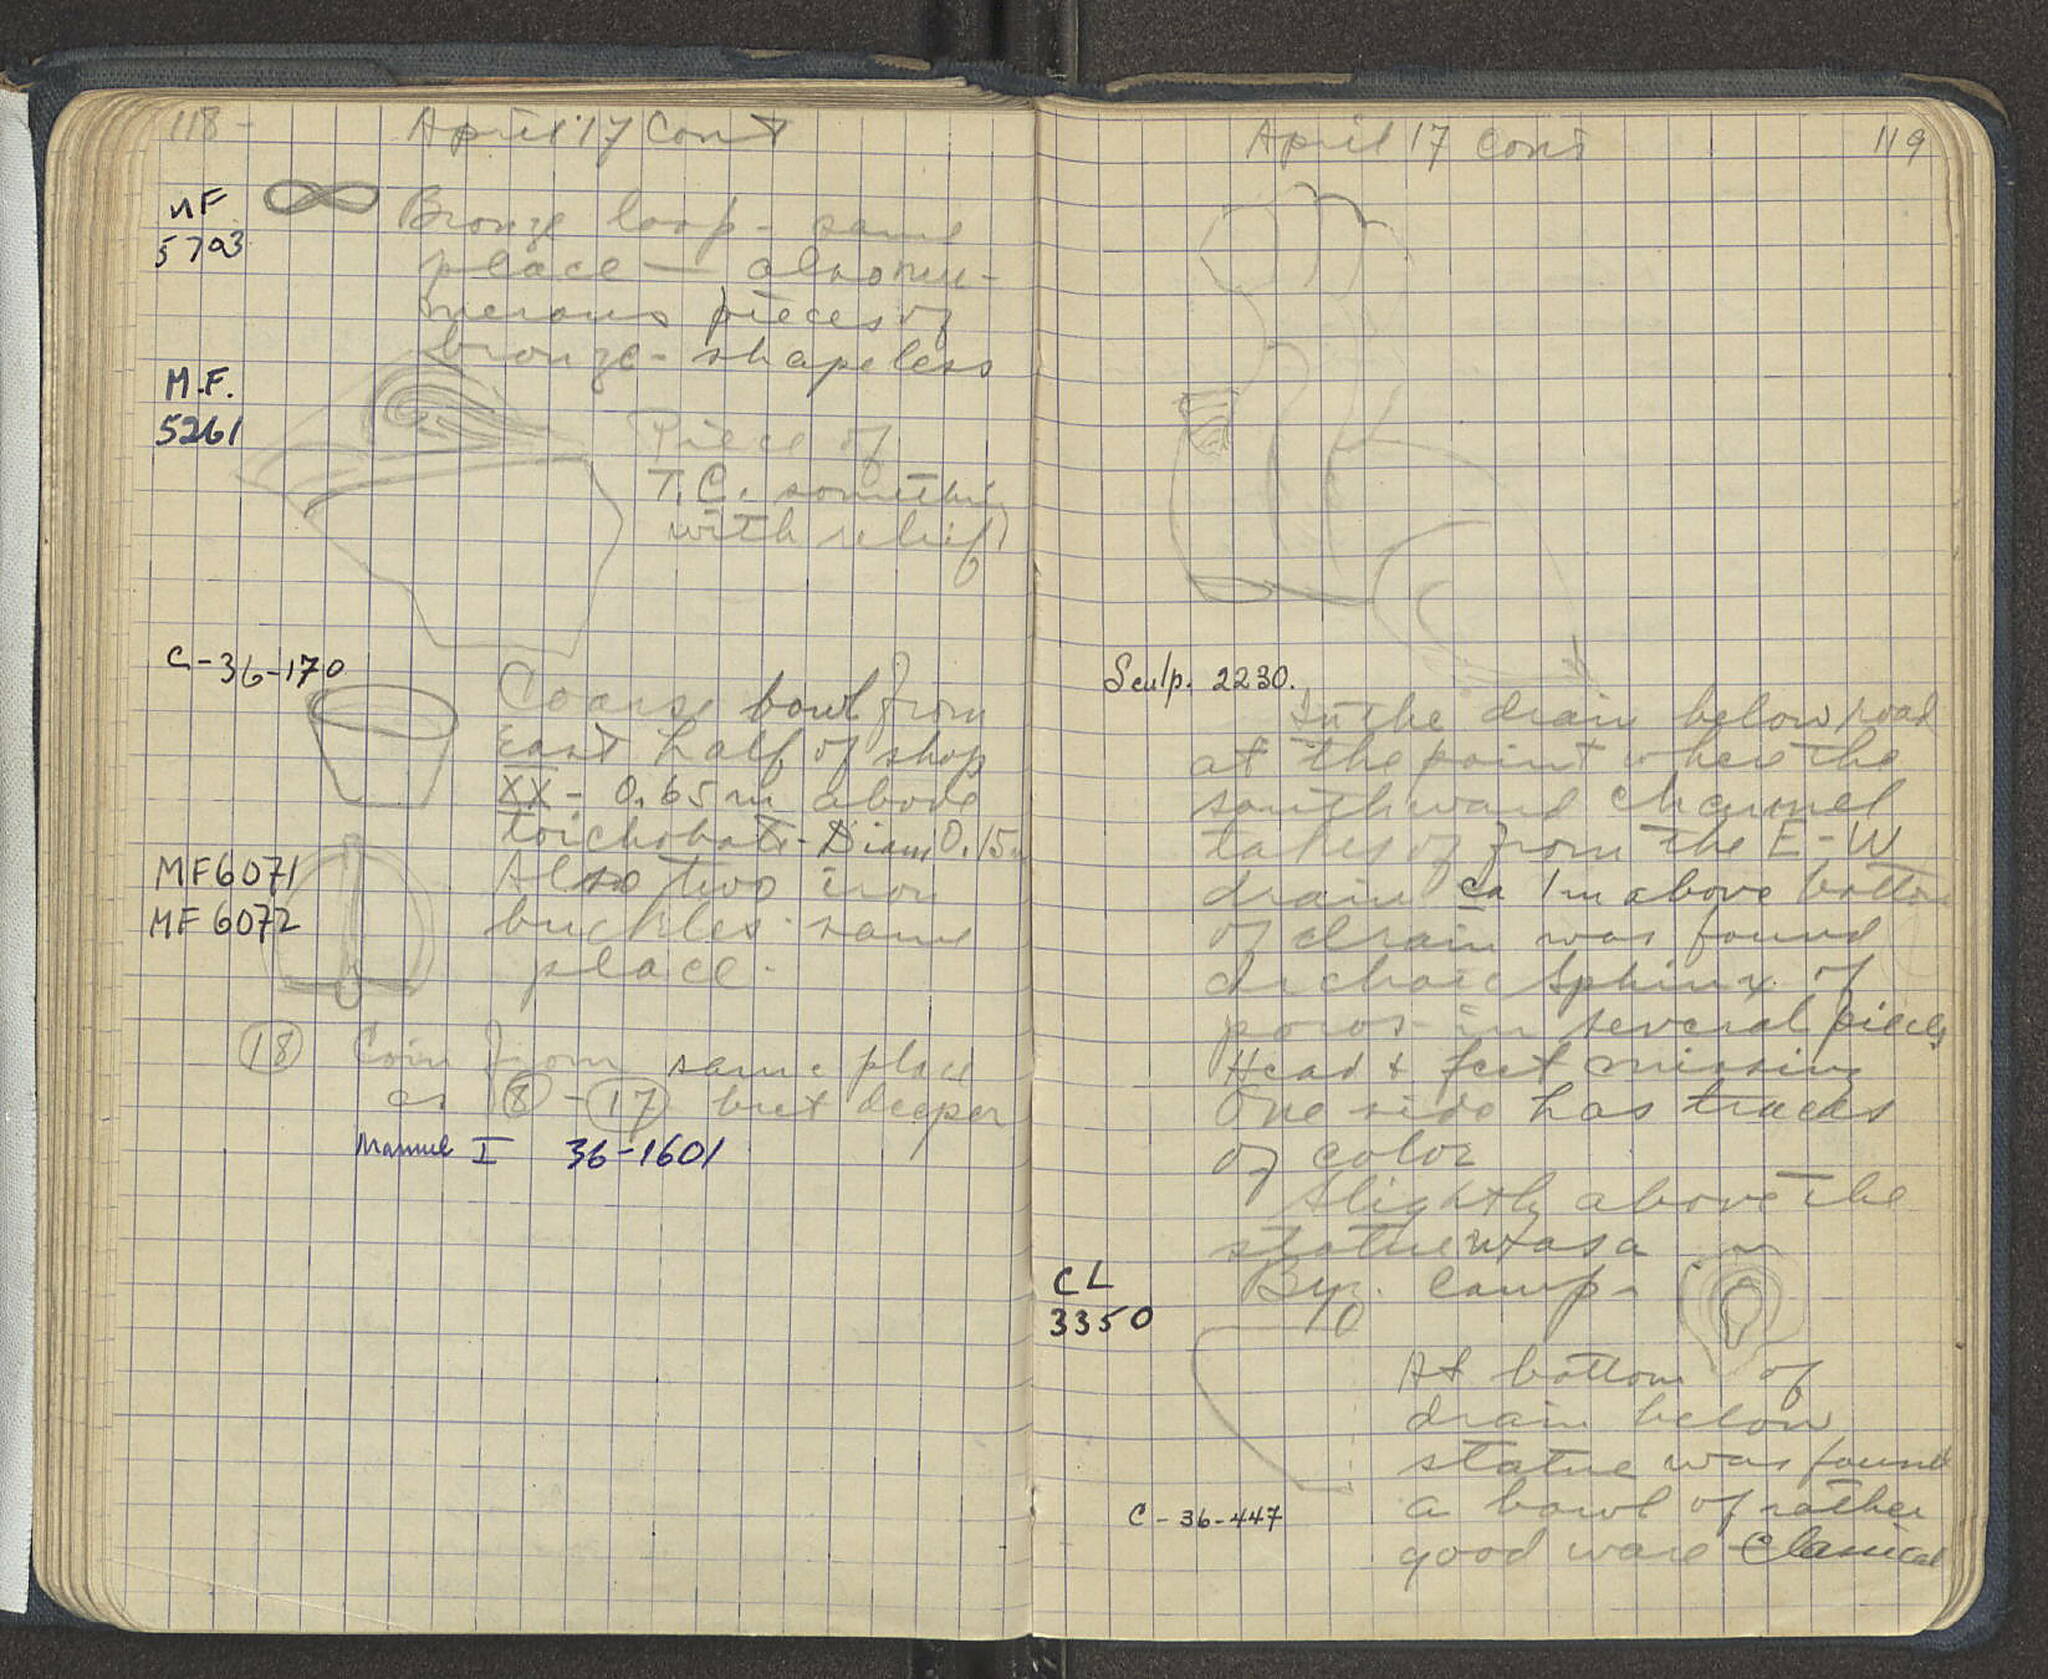 118- April 17 Cont
MF
5793
Bronze loop - same
place - also nu-
merous pieces of
bronze - shapeless
M.F.
5261
Piece of
T.C. something
with relief
C-36-170
Coarse bowl from
East half of shop
XX - 0.65m above
toichobat - Diam 0.15m
MF6071
MF 6072
Also two iron
buckles same
place.
(18) Coin from same place
as (8) - (17) but deeper
Manuel I 36-1601
April 17 Cont 119
Sculp. 2230.
In the drain below road
at the point where the
southward channel
takes of from the E-W
drain ca 1m above bottom
of drain was found
archaic Sphinx of
poros in several pieces
Head & feet missing
One side has traces
of color
Slightly above the
statue was a
CL
3350
Byz. lamp -
At bottom of
drain below
statue was found
a bowl of rather
C-36-447
good ware - Classical